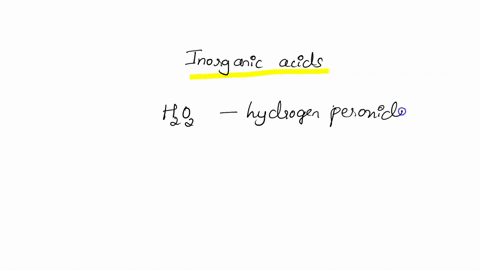 Inorganic acids
H2O2 — hydrogen peroxide